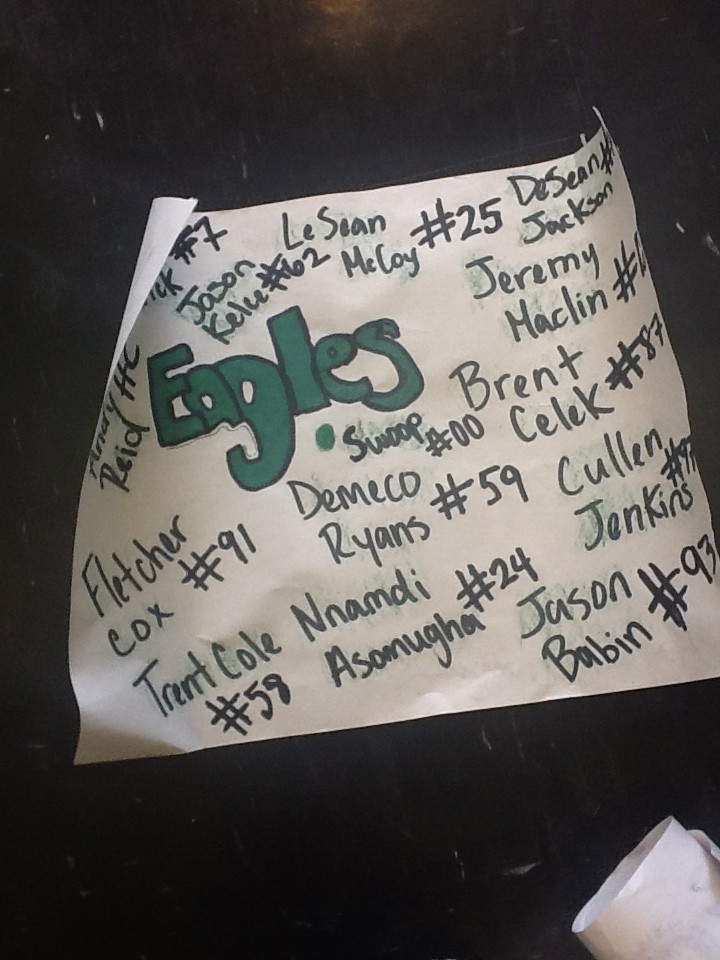 #7
Jason
Kelce #62
LeSean
McCoy #25
DeSean
Jackson
Jeremy
Maclin
Andy HC
Reid
Eagles
Swoop
#00
Brent
Celek #87
Demeco
Ryans #59
Cullen
Jenkins
Fletcher
Cox #91
Nnamdi
Asomugha #24
Jason
Babin #93
Trent Cole
#58